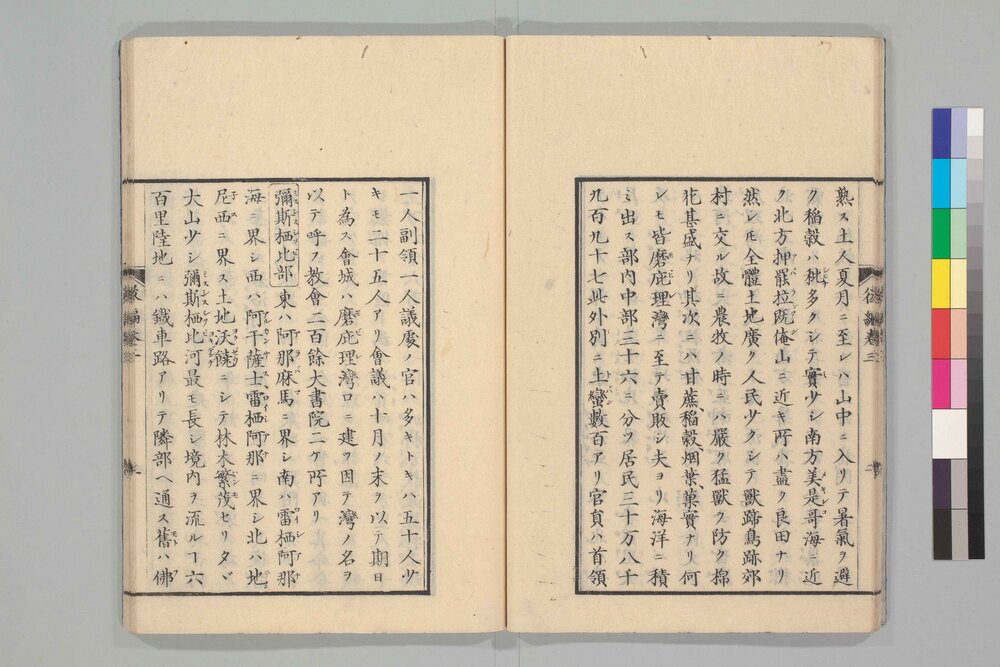 熟ス土人夏月ニ至レハ山中ニ入リテ暑氣ヲ避
ク稲穀ハ秕多クシテ實少シ南方美是哥海ニ近
ク北方押罷拉既俺山ニ近キ所ハ盡ク良田ナリ
然レモ全體土地廣ク人民少クシテ獸蹄鳥跡郊
村ニ交ル故ニ農牧ノ時ニハ嚴ク猛獸ヲ防ク棉
花甚盛ナリ其次ニハ甘蔗稲穀烟葉菓實ナリ何
レモ皆磨庇理灣ニ至テ賣販シ夫ヨリ海洋ニ積
ミ出ス部内中部三十六ニ分ツ居民三十万八千
九百九十七此外別ニ土蠻數百アリ官員ハ首領
後編卷三
二
一人副領一人議處ノ官ハ多キトキハ五十人少
キモ二十五人アリ會議ハ十月ノ末ヲ以テ期日
ト為ス會城ハ磨庇理灣口ニ建ツ因テ灣ノ名ヲ
以テ呼フ教會二百餘大書院二ケ所アリ
彌斯栖比部東ハ阿那麻馬ニ界シ南ハ雷栖阿那
海ニ界シ西ハ阿干薩士雷栖阿那ニ界シ北ハ地
尼西ニ界ス土地沃饒ニシテ林木繁茂セリタヾ
大山少シ彌斯栖比河最モ長シ境内ヲ流ルヿ六
百里陸地ニハ鐵車路アリテ隣部ヘ通ス舊ハ佛